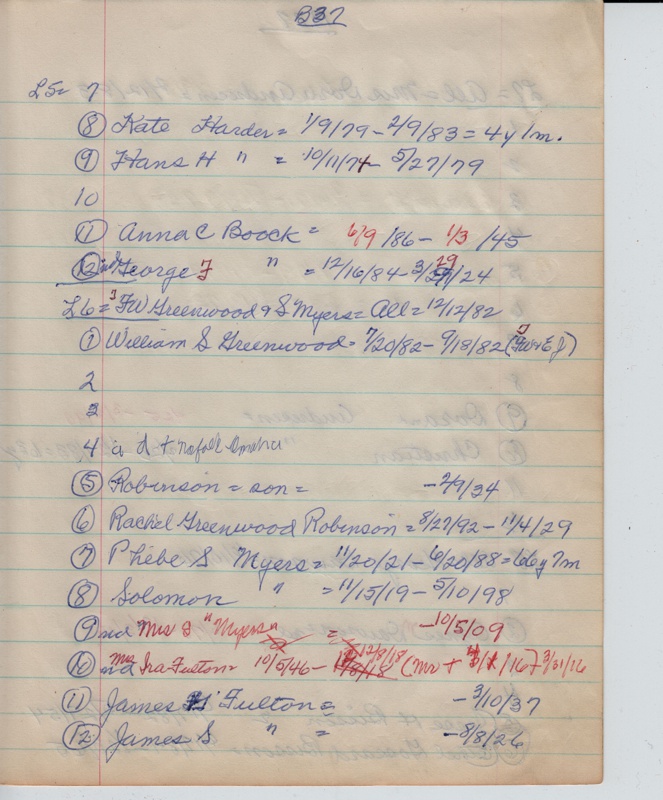 B37
L5= 7
⑧ Kate Harder = 1/9/79 - 2/9/83 = 4y 1m.
⑨ Hans H " = 10/11/74 - 5/27/79
10
⑪ Anna C Boock = 6/9/86 - 1/3/45
⑫ nd George F " = 12/16/84 - 3/29/24
L6 = FW Greenwood & S Myers = All = 12/12/82
① William S Greenwood = 7/20/82 - 9/18/82 (FW & E J)
2
3
4 a d + Norfolk Omaha
⑤ Robinson = son = - 2/9/34
⑥ Rachel Greenwood Robinson = 8/27/92 - 11/4/29
⑦ Phebe S Myers = 11/20/21 - 6/20/88 = 66y 7m
⑧ Solomon " = 11/15/19 - 5/10/98
⑨ nd Mrs S " Myers = - 10/5/09
⑩ nd Mrs Ira Fulton 10/5/46 - 12/8/18 (Mr + 3/31/16
⑪ James H Fulton = - 3/10/37
⑫ James S " = - 8/8/26